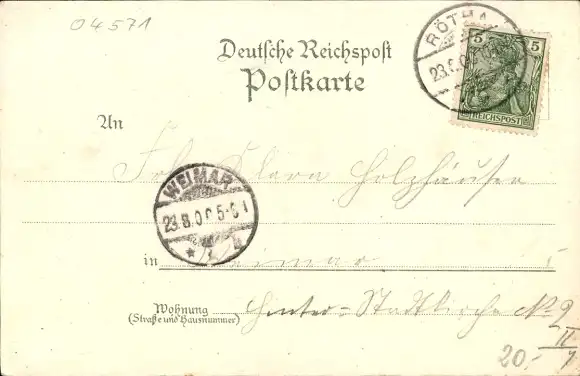 04571
Deutsche Reichspost
Postkarte
RÖTHA
23.8.0
5 5
REICHSPOST
An
Frl. Klara Holzhäuser
WEIMAR
23.8.00 5-6
in Weimar
Wohnung
(Straße und Hausnummer)
Hinter-Stadtkirche No 9
II
20.-